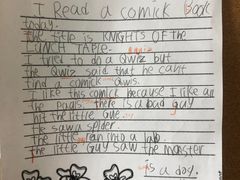 I Read a comick Book
today.
the title is KNIGHTS OF the
LUNCH TABLE.
I tried to do a Qwiz but
the Qwiz said that he cant
find a comick Qwis.
I like this comick because I like all
the there is a bad guy
hit the little
He saw a spider.
The little ran into a lab
the little Guy saw the monster
is a dog.